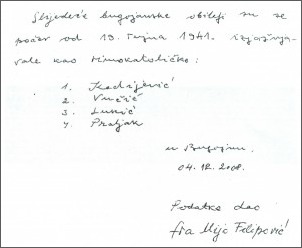 Slijedeće bugojanske obitelji su se
počev od 19. rujna 1941. izjašnja-
vale kao rimokatoličke:
1. Kadrijević
2. Vučić
3. Lukić
4. Praljak
u Bugojnu,
04.12.2008.
Podatke dao
fra Mijo Filipović